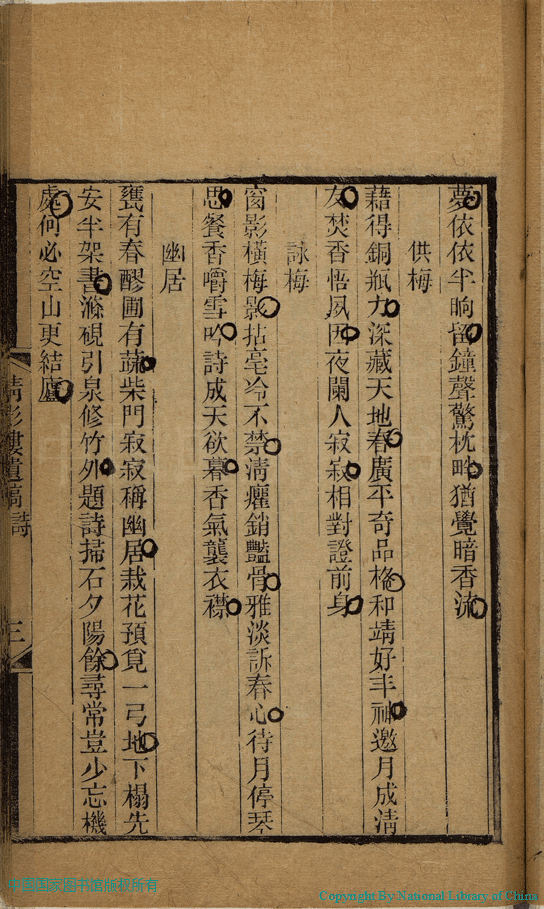 夢依依半晌留鐘聲驚枕畔猶覺暗香流
供梅
藉得銅瓶力深藏天地春廣平奇品格和靖好丰神邀月成清
友焚香悟夙因夜闌人寂寂相對證前身
詠梅
窗影橫梅影拈毫冷不禁清癯銷豔骨雅淡訴春心待月停琴
思餐香嚼雪吟詩成天欲暮香氣襲衣襟
幽居
甕有春醪圃有蔬柴門寂寂稱幽居栽花預覓一弓地下榻先
安半架書滌硯引泉修竹外題詩掃石夕陽餘尋常豈少忘機
處何必空山更結廬
清影樓遺稿 詩 三
中国国家图书馆版权所有
Copyright By National Library of China